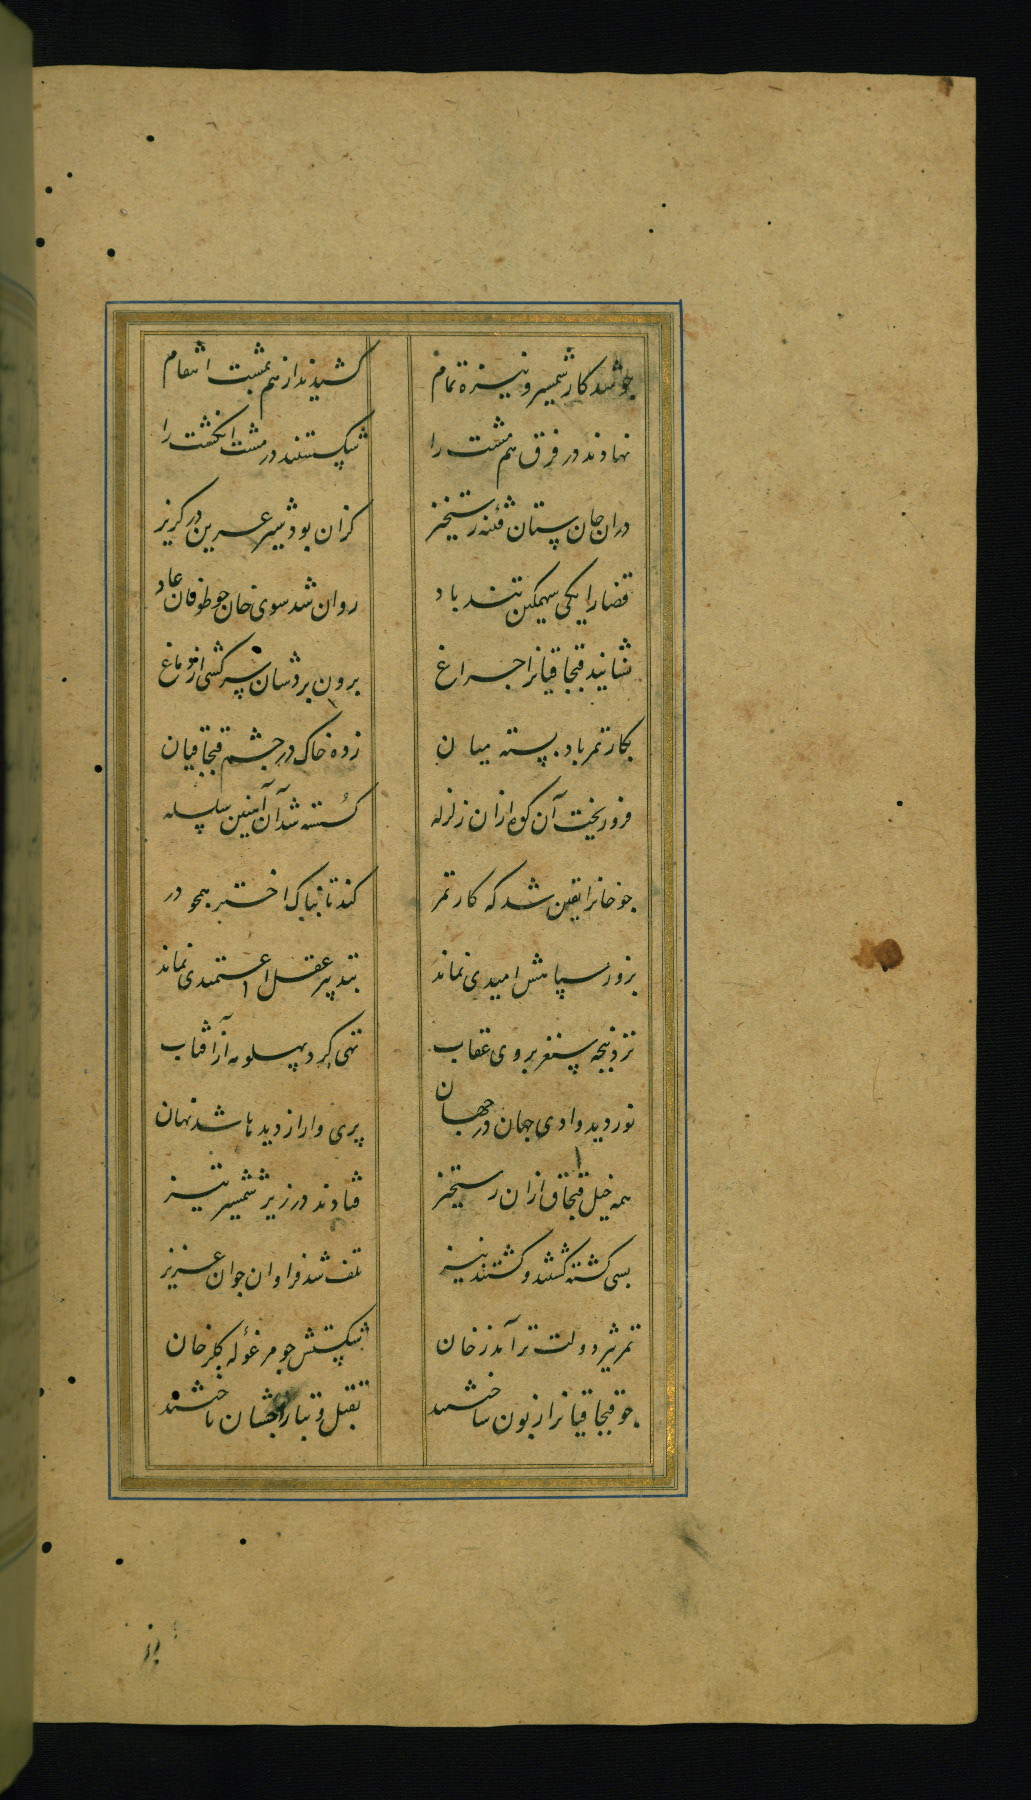 جو شد کار شمشیر و نیزه تمام کشیدند از هم بمشت انتقام
نهادند در فرق هم مشت را شکستند در مشت انکشت را
دران جان ستان فتنه رستخیز کزان بود شیر عرین در کریز
قضا را یکی سهمکین تندباد روان شد سوی خان جو طوفان عاد
نشانید قبجاقیانرا جراغ برون بردشان سرکشی از دماغ
بکار تمر باد بسته میان زده خاک در جشم قبجاقیان
فرو ریخت آن کوه ازان زلزله کسسته شد آن آهنین سلسله
جو خانرا یقین شد که کار تمر کند تابناک اختر همجو در
بزور سپاهش امیدی نماند بتدبیر عقل اعتمیدی نماند
نزد پنجه سنقر بروی عقاب تهی کرد پهلو مه از آفتاب
نوردید وادی جهان در جهان پری وار از دیدها شد نهان
همه خیل قبجاق ازان رستخیز فتادند در زیر شمشیر تیز
بسی کشته کشتند و کشتند نیز تلف شد فراوان جوان عزیز
تمر شیر دولت تر آمد ز خان شکستش جو مرغوله کلرخان
جو قبجاقیانرا زبون ساختند بقتل و بتاراجشان تاختند